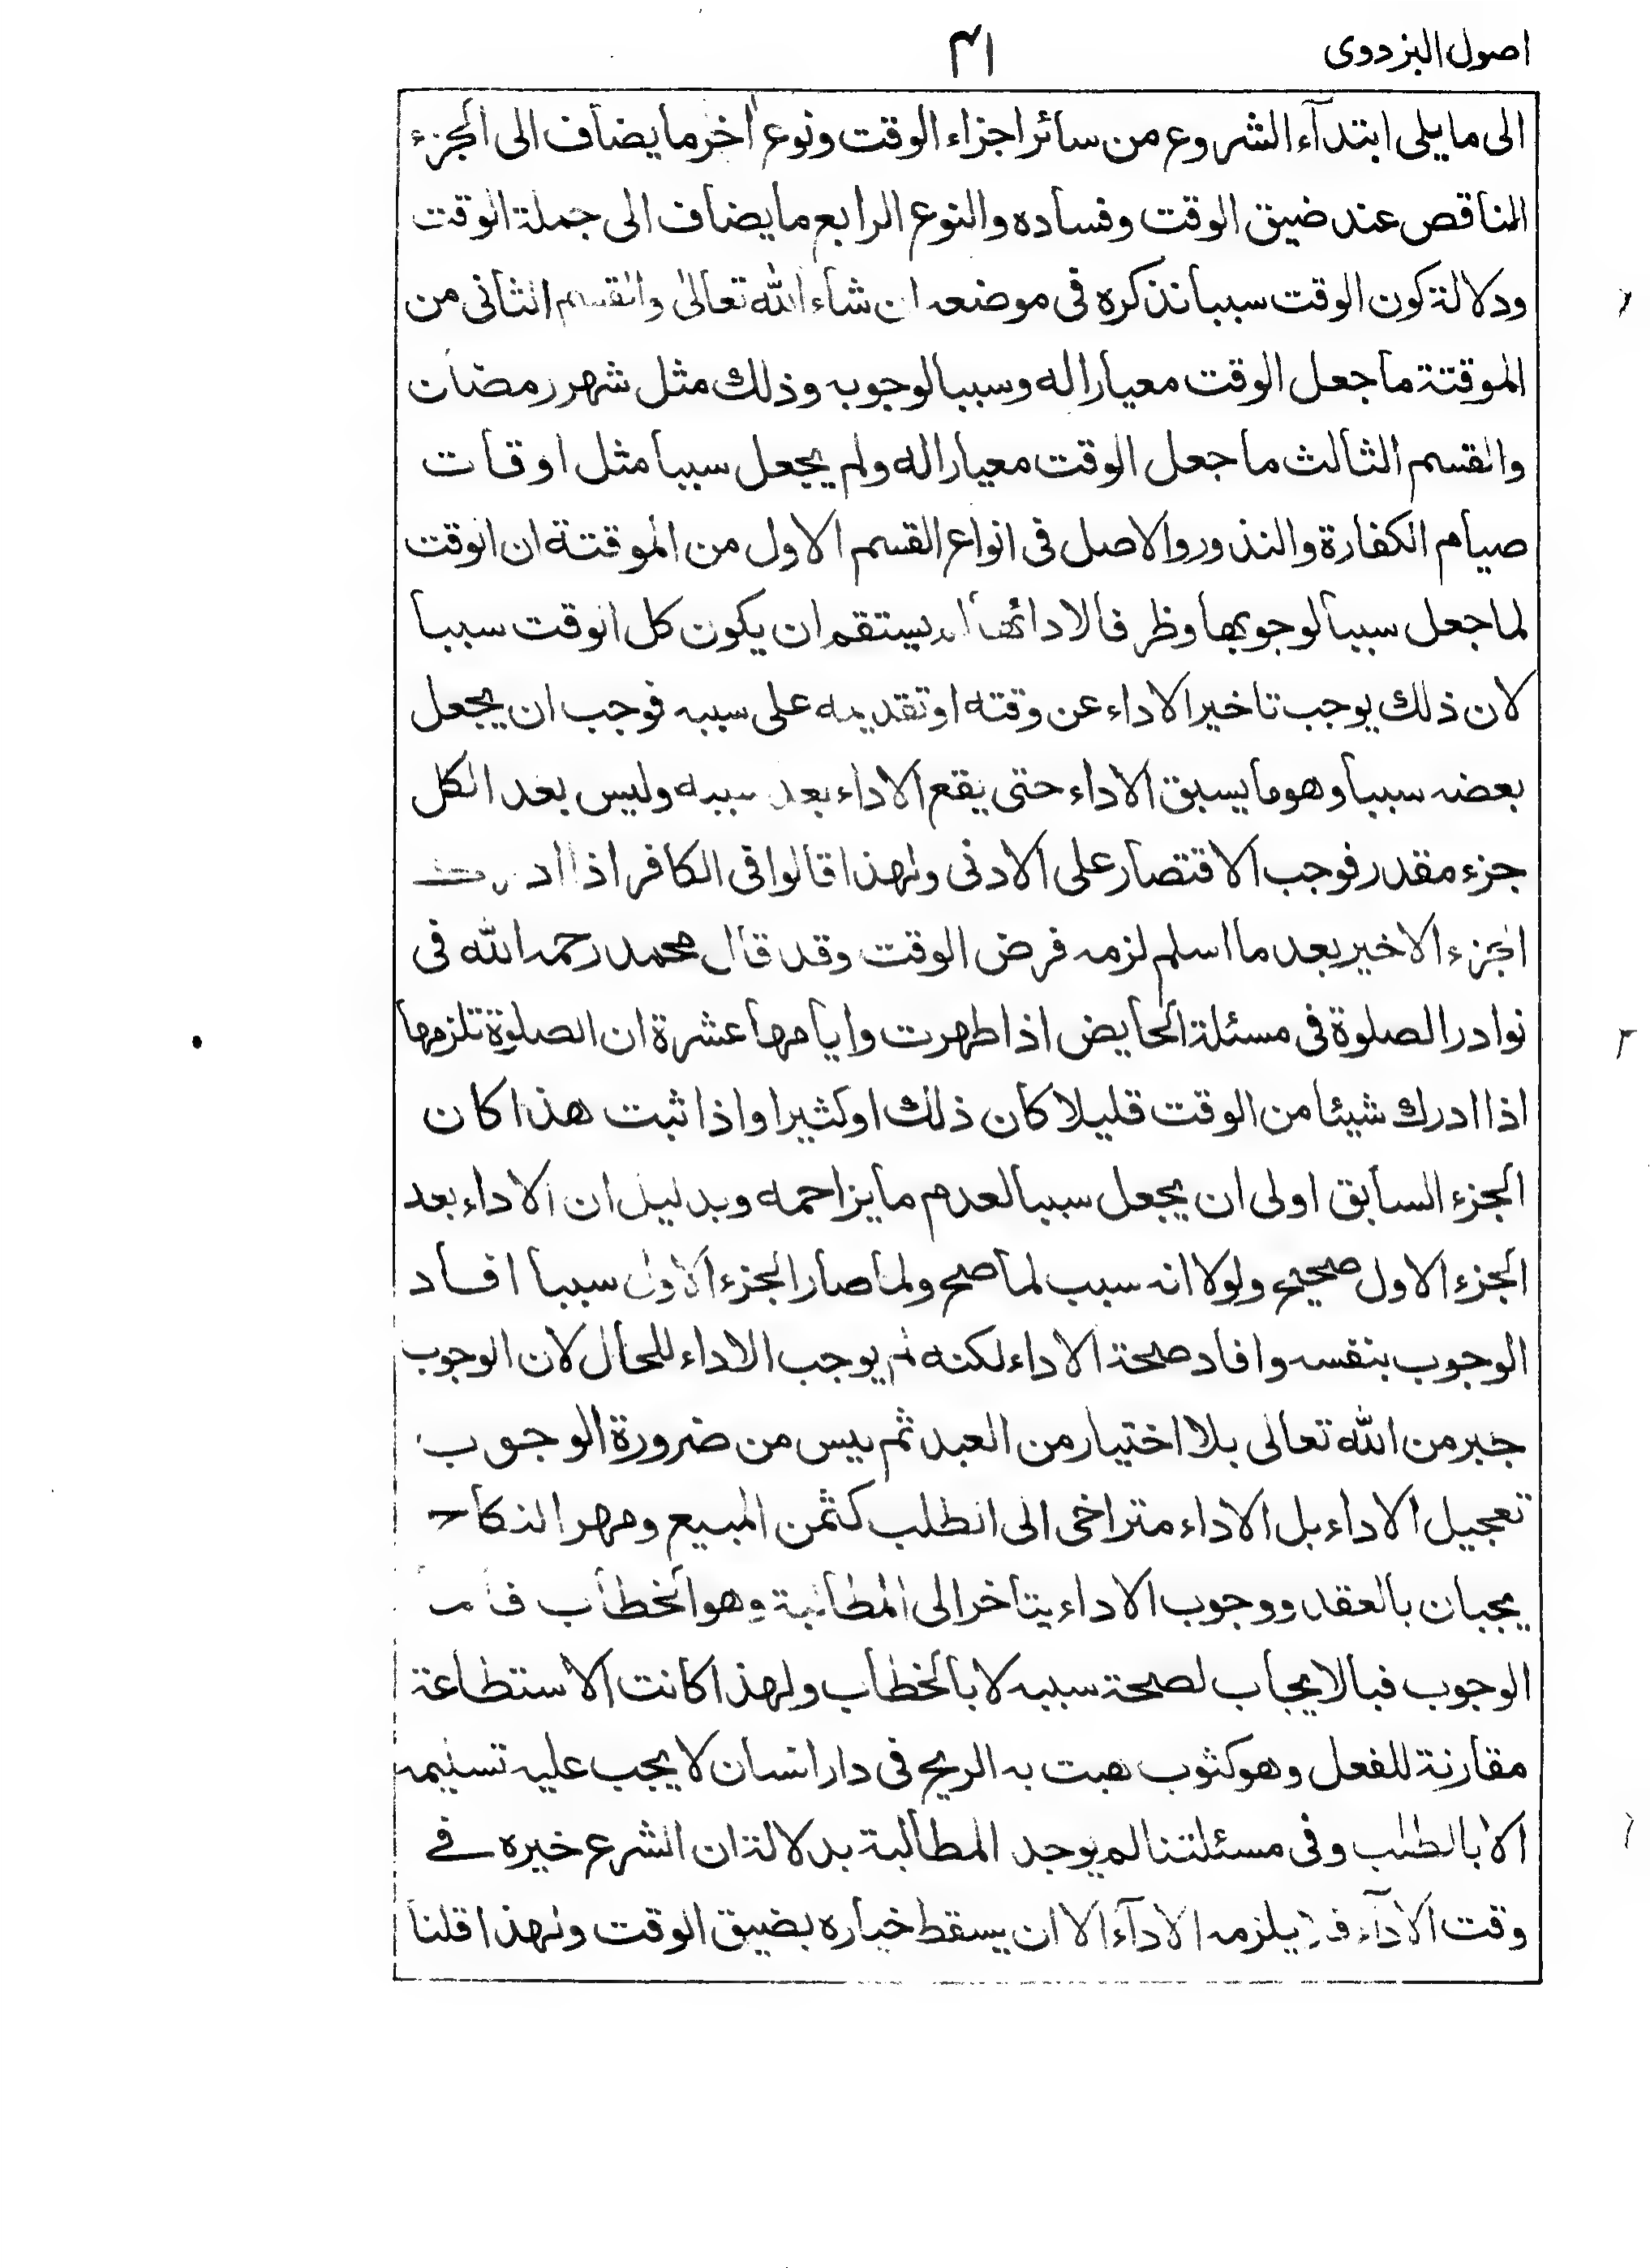 اصول البزدوی
۴۱
الى ما يلى ابتدآء الشروع من سائر اجزاء الوقت ونوع اٰخر ما يضاف الى الجزء
الناقص عند ضيق الوقت وفساده والنوع الرابع ما يضاف الى جملة الوقت
ودلالة كون الوقت سببا نذكره فى موضعه ان شاء الله تعالىٰ والقسم الثانى من
الموقتة ما جعل الوقت معيارا له وسببا لوجوبه وذلك مثل شهر رمضان
والقسم الثالث ما جعل الوقت معيارا له ولم يجعل سببا مثل اوقات
صيام الكفارة والنذور والاصل فى انواع القسم الاول من الموقتة ان الوقت
لما جعل سببا لوجوبها وظرفا لادائها لم يستقم ان يكون كل الوقت سببا
لان ذلك يوجب تاخير الاداء عن وقته او تقديمه على سببه فوجب ان يجعل
بعضه سببا وهو ما يسبق الاداء حتى يقع الاداء بعد سببه وليس بعد الكل
جزء مقدر فوجب الاقتصار على الادنى ولهذا قالوا فى الكافر اذا ادرك
الجزء الاخير بعد ما اسلم لزمه فرض الوقت وقد قال محمد رحمه الله فى
نوادر الصلوة فى مسئلة الحايض اذا طهرت وايامها عشرة ان الصلوة تلزمها
اذا ادرك شيئا من الوقت قليلا كان ذلك او كثيرا واذا ثبت هذا كان
الجزء السابق اولى ان يجعل سببا لعدم ما يزاحمه وبدليل ان الاداء بعد
الجزء الاول صحيح ولولا انه سبب لما صح ولما صار الجزء الاول سببا افاد
الوجوب بنفسه وافاد صحة الاداء لكنه لم يوجب الاداء للحال لان الوجوب
جبر من الله تعالى بلا اختيار من العبد ثم ليس من ضرورة الوجوب
تعجيل الاداء بل الاداء متراخى الى الطلب كثمن المبيع ومهر النكاح
يجبان بالعقد ووجوب الاداء يتاخر الى المطالبة وهو الخطاب
الوجوب فبالايجاب لصحة سببه لا بالخطاب ولهذا كانت الاستطاعة
مقارنة للفعل وهو كثوب هبت به الريح فى دار انسان لا يجب عليه تسليمه
الا بالطلب وفى مسئلتنا لم يوجد المطالبة بدلالة ان الشرع خيره فے
وقت الادآء فلا يلزمه الادآء الا ان يسقط خياره بضيق الوقت ولهذا قلنا